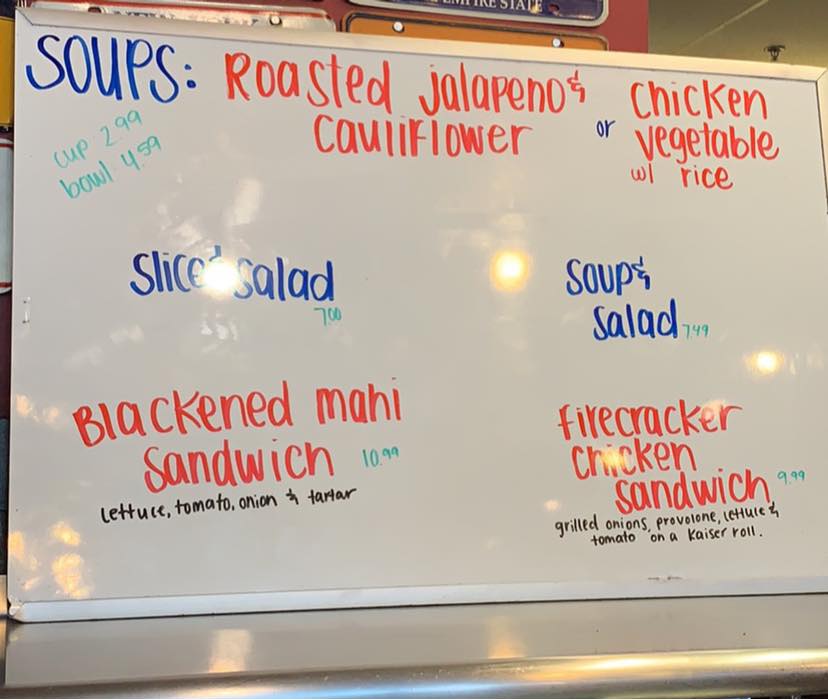 EMPIRE STATE
SOUPS: Roasted jalapeno &
cauliflower
or
chicken
vegetable
w/ rice
cup 2.99
bowl 4.59
Slice & Salad
7.00
Soup &
Salad 7.49
Blackened mahi
Sandwich 10.99
lettuce, tomato, onion & tartar
firecracker
chicken
sandwich 9.99
grilled onions, provolone, lettuce &
tomato on a Kaiser roll.